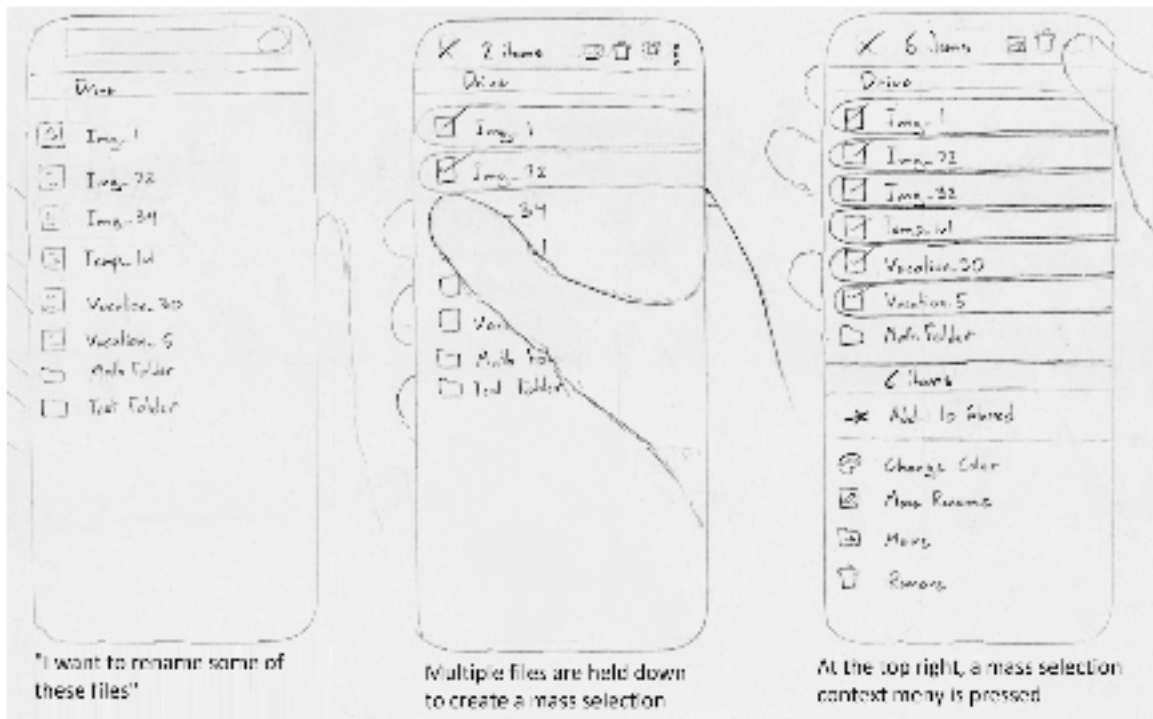 Drive
Img_1
Img_72
Img_34
Temp_1
Vacation_30
Vacation_5
Math Folder
Test Folder
"I want to rename some of
these files"
2 items
Drive
Img_1
Img_72
_34
1
Math Fol
Test Folder
Multiple files are held down
to create a mass selection
6 items
Drive
Img_1
Img_72
Img_32
Vacation_30
Vacation_5
Math Folder
6 items
Add to Shared
Change Color
Mass Rename
Move
Remove
At the top right, a mass selection
context meny is pressed